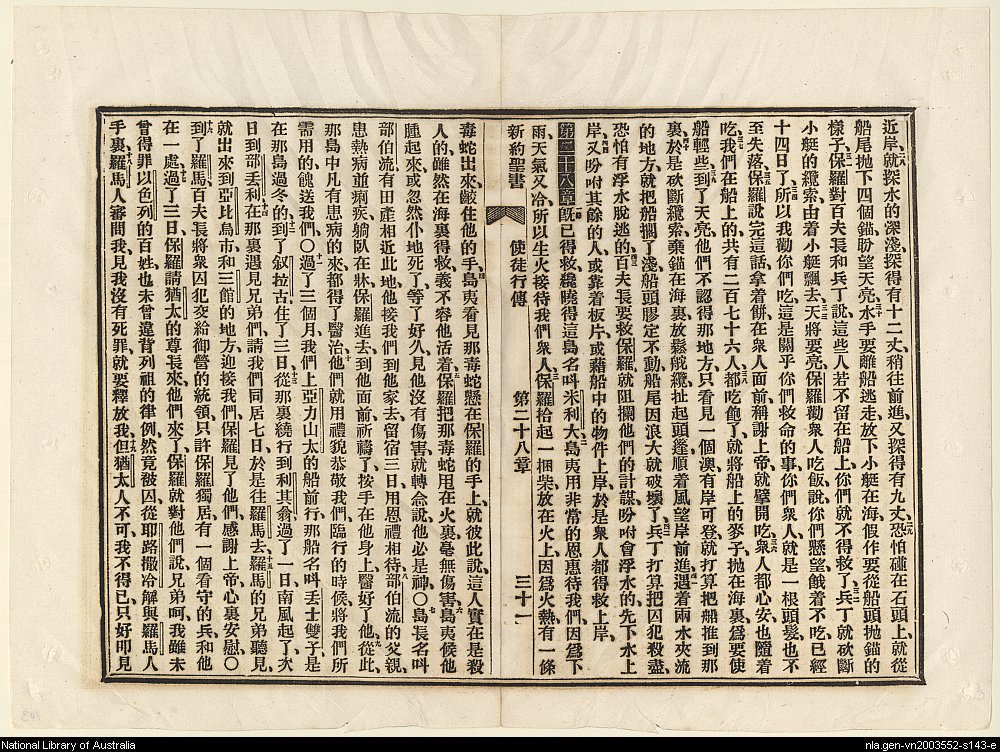 近岸、就探水的深淺、探得有十二丈、稍往前進、又探得有九丈、恐怕碰在石頭上、就從
船尾抛下四個錨、盼望天亮、水手要離船逃走、放下小艇在海、假作要從船頭抛錨的
樣子、保羅對百夫長和兵丁說、這些人若不留在船上、你們就不得救了、兵丁就砍斷
小艇的纜索、由着小艇飄去、天將要亮、保羅勸衆人吃飯、說你們懸望餓着不吃已經
十四日了、所以我勸你們吃、這是關乎你們救命的事、你們衆人、就是一根頭髮、也不
至失落、保羅說完這話、拿着餅在衆人面前稱謝上帝、就擘開吃、衆人都心安、也隨着
吃、我們在船上的共有二百七十六人、都吃飽了、就將船上的麥子、抛在海裏、爲要使
船輕些、到了天亮、他們不認得那地方、只看見一個澳、有岸可登、就打算把船推到那
裏、於是砍斷纜索、棄錨在海裏、放鬆舵纜、扯起頭篷、順着風、望岸前進、遇着兩水夾流
的地方、就把船擱了淺、船頭膠定不動、船尾因浪大、就破壞了、兵丁打算把囚犯殺盡、
恐怕有浮水脫逃的、百夫長要救保羅、就阻攔他們的計謀、吩咐會浮水的、先下水上
岸、又吩咐其餘的人、或靠着板片、或藉船中的物件上岸、於是衆人都得救上岸、
第二十八章 旣已得救、纔曉得這島名呌米利大、島夷用非常的恩惠待我們、因爲下
雨、天氣又冷、所以生火接待我們衆人、保羅拾起一捆柴、放在火上、因爲火熱、有一條
新約聖書 使徒行傳 第二十八章 三十一
毒蛇出來、齩住他的手、島夷看見那毒蛇懸在保羅的手上、就彼此說、這人實在是殺
人的、雖然在海裏得救、義不容他活着、保羅把那毒蛇甩在火裏、毫無傷害、島夷候他
腫起來、或忽然仆地死了、等了好久、見他沒有傷害、就轉念說、他必是神〇島長名呌
部伯流、有田產相近此地、他接我們到他家去、留宿三日、用恩禮相待、部伯流的父親、
患熱病並痢疾、躺臥在牀、保羅進去、到他面前祈禱了、按手在他身上、醫好了他、從此
那島中凡有患病的來、都得了醫治、他們就用禮貌恭敬我們、臨行的時候、將我們所
需用的、餽送我們〇過了三個月、我們上亞力山太的船前行、那船名呌丟士雙子、是
在那島過冬的、到了叙拉古、住了三日、從那裏繞行到利其翕、過了一日、南風起了、次
日到部丟利、在那裏遇見兄弟們、請我們同居七日、於是往羅馬去、羅馬的兄弟聽見、
就出來到亞比烏市、和三館的地方迎接我們、保羅見了他們、感謝上帝、心裏安慰〇
到了羅馬、百夫長將衆囚犯交給御營的統領、只許保羅獨居、有一個看守的兵、和他
在一處、過了三日、保羅請猶太的尊長來、他們來了、保羅就對他們說、兄弟呵、我雖未
曾得罪以色列的百姓、也未曾違背列祖的律例、然竟被囚、從耶路撒冷解與羅馬人
手裏、羅馬人審問我、見我沒有死罪、就要釋放我、但猶太人不可、我不得已、只好叩見
National Library of Australia
nla.gen-vn2003552-s143-e